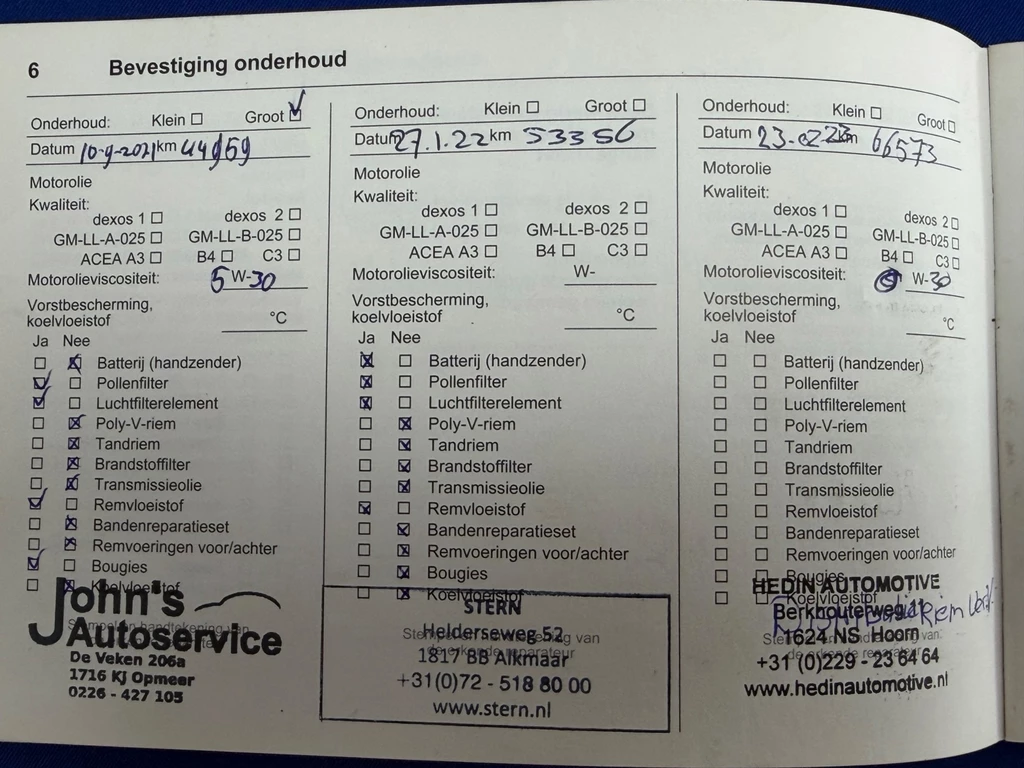 6 Bevestiging onderhoud
Onderhoud: Klein ☐ Groot ☑
Datum 10-9-2021 km 44959
Motorolie
Kwaliteit:
dexos 1 ☐ dexos 2 ☐
GM-LL-A-025 ☐ GM-LL-B-025 ☐
ACEA A3 ☐ B4 ☐ C3 ☐
Motorolieviscositeit: 5 W-30
Vorstbescherming,
koelvloeistof °C
Ja Nee
☐ ☒ Batterij (handzender)
☑ ☐ Pollenfilter
☑ ☐ Luchtfilterelement
☐ ☒ Poly-V-riem
☐ ☒ Tandriem
☐ ☒ Brandstoffilter
☐ ☒ Transmissieolie
☑ ☐ Remvloeistof
☐ ☒ Bandenreparatieset
☐ ☒ Remvoeringen voor/achter
☑ ☐ Bougies
☐ ☒ Koelvloeistof
John's
Autoservice
De Veken 206a
1716 KJ Opmeer
0226 - 427 105
Onderhoud: Klein ☐ Groot ☐
Datum 27.1.22 km 53356
Motorolie
Kwaliteit:
dexos 1 ☐ dexos 2 ☐
GM-LL-A-025 ☐ GM-LL-B-025 ☐
ACEA A3 ☐ B4 ☐ C3 ☐
Motorolieviscositeit: W-
Vorstbescherming,
koelvloeistof °C
Ja Nee
☒ ☐ Batterij (handzender)
☒ ☐ Pollenfilter
☒ ☐ Luchtfilterelement
☐ ☒ Poly-V-riem
☐ ☒ Tandriem
☐ ☒ Brandstoffilter
☐ ☒ Transmissieolie
☒ ☐ Remvloeistof
☐ ☒ Bandenreparatieset
☐ ☒ Remvoeringen voor/achter
☐ ☒ Bougies
☐ ☒ Koelvloeistof
STERN
Helderseweg 52
1817 BB Alkmaar
+31(0)72 - 518 80 00
www.stern.nl
Onderhoud: Klein ☐ Groot ☐
Datum 23-02-23 km 66573
Motorolie
Kwaliteit:
dexos 1 ☐ dexos 2 ☐
GM-LL-A-025 ☐ GM-LL-B-025 ☐
ACEA A3 ☐ B4 ☐ C3 ☐
Motorolieviscositeit: W-30
Vorstbescherming,
koelvloeistof °C
Ja Nee
☐ ☐ Batterij (handzender)
☐ ☐ Pollenfilter
☐ ☐ Luchtfilterelement
☐ ☐ Poly-V-riem
☐ ☐ Tandriem
☐ ☐ Brandstoffilter
☐ ☐ Transmissieolie
☐ ☐ Remvloeistof
☐ ☐ Bandenreparatieset
☐ ☐ Remvoeringen voor/achter
☐ ☐ Bougies
☐ ☐ Koelvloeistof
HEDIN AUTOMOTIVE
Berkhouterweg 11
1624 NS Hoorn
+31 (0)229 - 23 64 64
www.hedinautomotive.nl